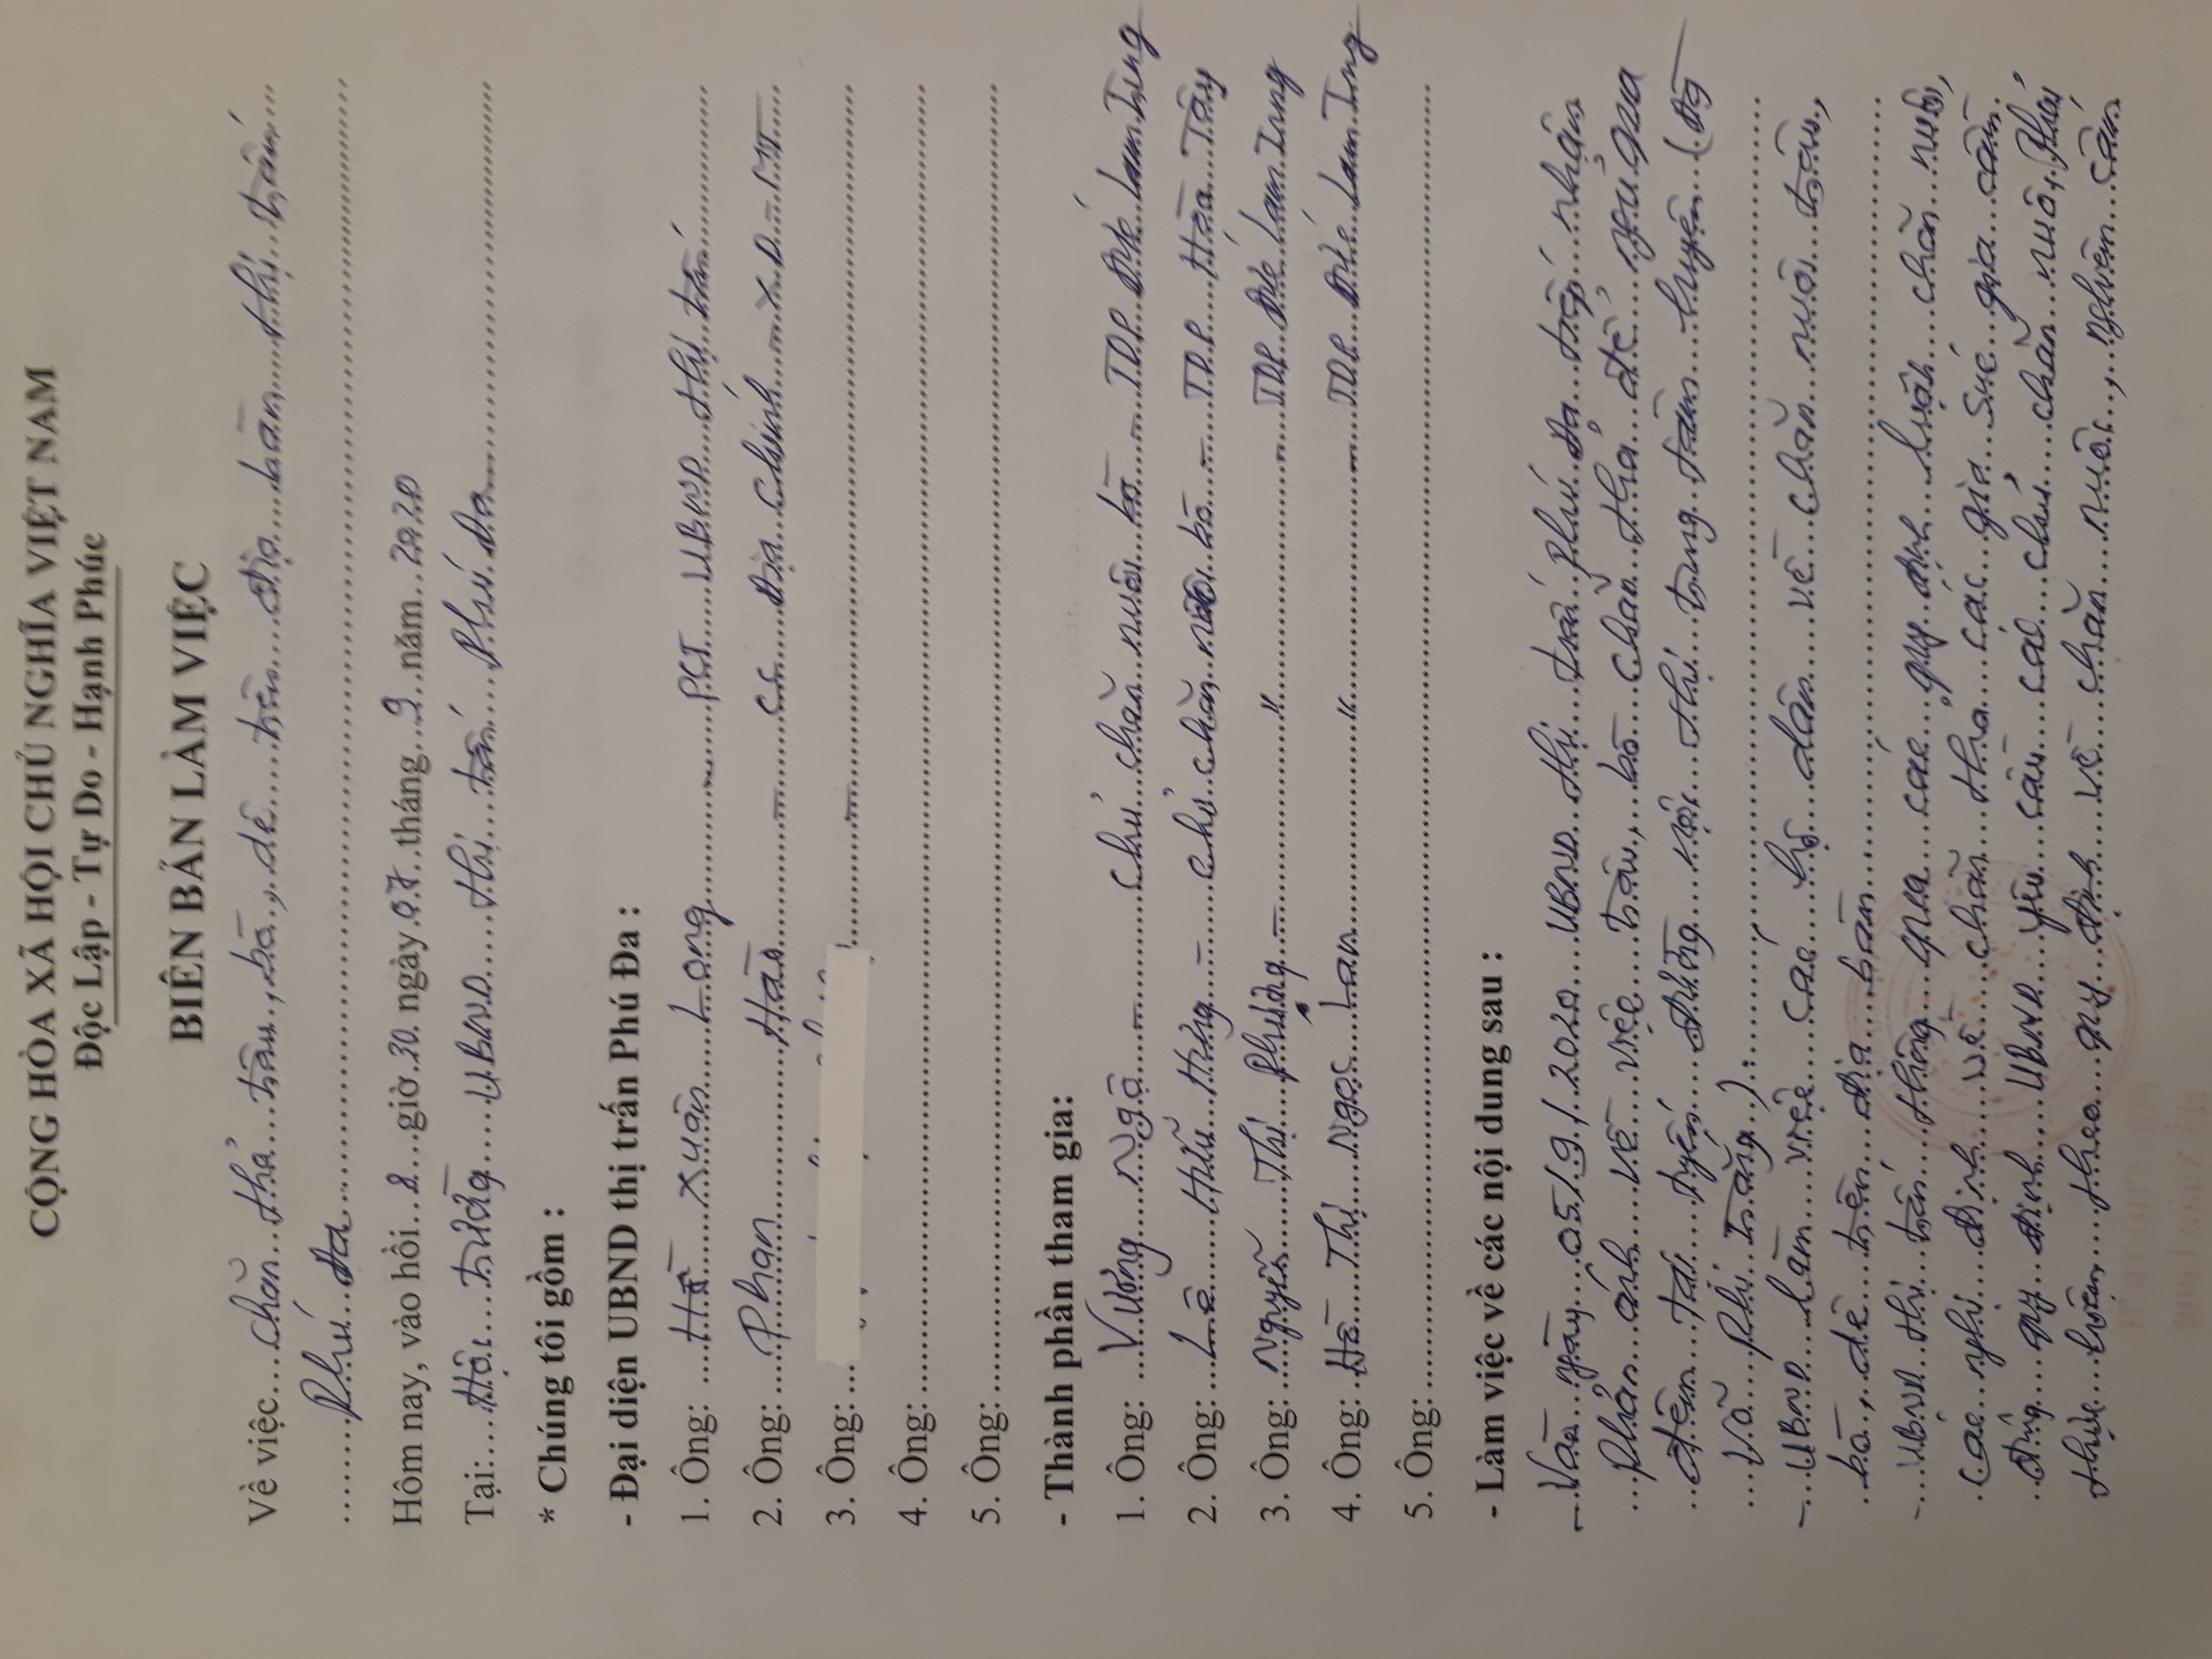 CỘNG HÒA XÃ HỘI CHỦ NGHĨA VIỆT NAM
Độc Lập - Tự Do - Hạnh Phúc
BIÊN BẢN LÀM VIỆC
Về việc...chăn...thả...trâu.,.bò.,.dê....trên...địa...bàn...thị...trấn...
.......Phú...Đa...
Hôm nay, vào hồi..8...giờ.30. ngày.07. tháng..9..năm..2020
Tại:...Hội...trường.....UBND....thị...trấn...Phú Đa...
* Chúng tôi gồm :
- Đại diện UBND thị trấn Phú Đa :
1. Ông: ...Hồ...Xuân...Long...PCT...UBND...thị trấn...
2. Ông: ...Phan...Hào...CC...Địa...chính...XD-MT...
3. Ông: ...
4. Ông: ...
5. Ông: ...
- Thành phần tham gia:
1. Ông: ...Vương...Ngộ...-...chủ chăn nuôi bò...-...TDP Đức Lam Trung
2. Ông: ...Lê...Hữu...Hùng...-...chủ chăn nuôi bò...-...TDP...Hòa...Tây
3. Ông: ...Nguyễn...Thị...Phương...-..."...-...TDP Đức Lam Trung
4. Ông: ...Hồ...Thị...Ngọc...Lan..."...-...TDP Đức Lam Trung
5. Ông: ...
- Làm việc về các nội dung sau :
-...Vào...ngày...05/9/2020...UBND...thị...trấn Phú Đa...tiếp...nhận
...phản ánh...về...việc...trâu,...bò...chăn thả...để...qua
...đêm...tại...tuyến...đường...nội...thị...trung tâm...huyện...(đg
...Võ...Phi...Trắng...):...
-...UBND...làm...việc...các...hộ...dân...về...chăn...nuôi...trâu,
.bò.,.dê...trên...địa...bàn...
-...UBND thị...trấn...thông...qua...các...quy định...luật...chăn...nuôi,
.các...nghị...định...về...chăn...thả...các...gia súc...gia...cầm.
...quy...định...UBND...yêu...cầu...các...chủ...chăn...nuôi,.phải
thực...hiện...theo...quy...định...về...chăn...nuôi.,...nghiêm...cấm